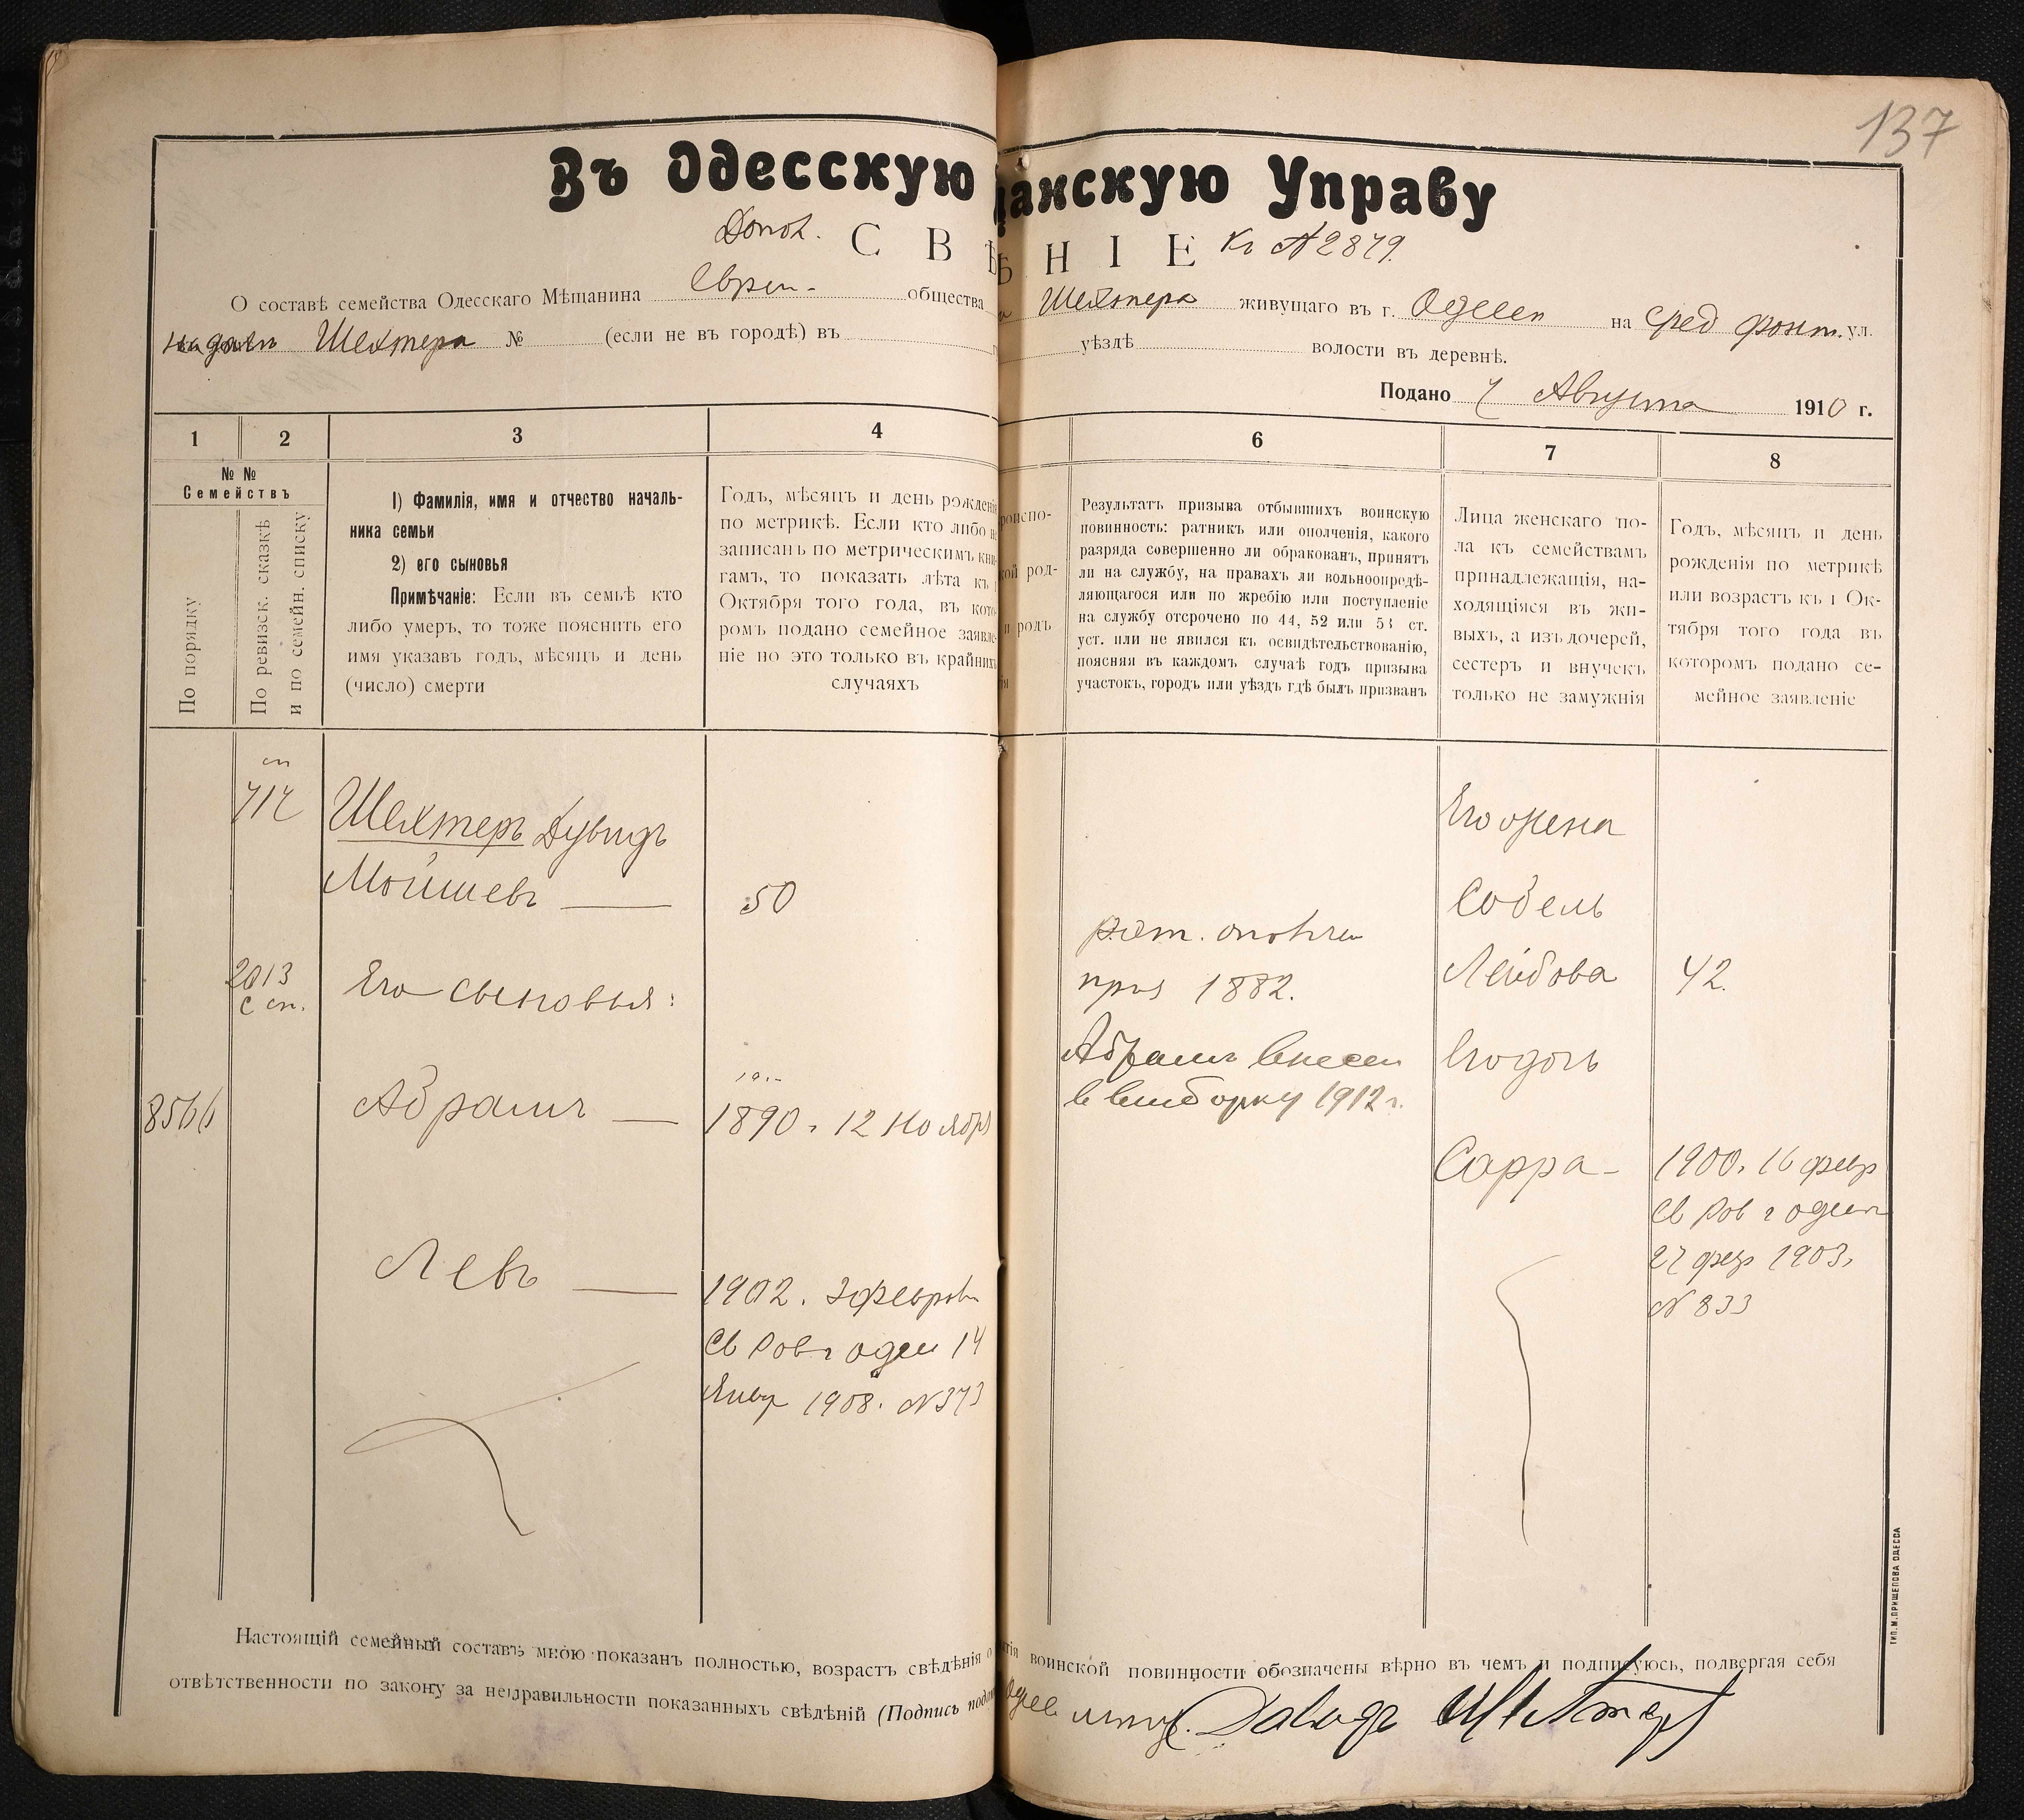 137
Въ Одесскую щанскую Управу
Допол. СВѢ ѢНІЕ Къ №2879.
О составѣ семейства Одесскаго Мѣщанина Еврей- общества а Шехтера живущаго въ г. Одессе на Сред фонт. ул.
Шехтера № (если не въ городѣ) въ уѣздѣ волости въ деревнѣ.
Подано 7 Августа 1910 г.
1 2 3 4 6 7 8
№ №
Семействъ
По порядку
По ревизск. сказкѣ
и по семейн. списку
1) Фамилія, имя и отчество началь-
ника семьи
2) его сыновья
Примѣчаніе: Если въ семьѣ кто
либо умеръ, то тоже пояснить его
имя указавъ годъ, мѣсяцъ и день
(число) смерти
Годъ, мѣсяцъ и день рожденія
по метрикѣ. Если кто либо не
записанъ по метрическимъ кни-
гамъ, то показать лѣта къ 1
Октября того года, въ кото-
ромъ подано семейное заявле-
ніе но это только въ крайнихъ
случаяхъ
роиспо-
кой род-
и родъ
ія
Результатъ призыва отбывшихъ воинскую
повинность: ратникъ или ополченія, какого
разряда совершенно ли обракованъ, принятъ
ли на службу, на правахъ ли вольноопредѣ-
ляющагося или по жребію или поступленіе
на службу отсрочено по 44, 52 или 53 ст.
уст. или не явился къ освидѣтельствованію,
поясняя въ каждомъ случаѣ годъ призыва
участокъ, городъ или уѣздъ гдѣ былъ призванъ
Лица женскаго по-
ла къ семействамъ
принадлежащія, на-
ходящіяся въ жи-
выхъ, а изъ дочерей,
сестеръ и внучекъ
только не замужнія
Годъ, мѣсяцъ и день
рожденія по метрикѣ
или возрастъ къ 1 Ок-
тября того года въ
которомъ подано се-
мейное заявленіе
сп
717
Шехтеръ Дувидъ
Мойшевъ
50
2013
с сп.
Его сыновья:
8566
Абрамъ
1890. 12 Ноября
Левъ
1902. 3 февраля
Св Рав г одес 14
Янвр 1908. №373
рат. ополчен
приз 1882.
Абрамъ внесен
в выборку 1912 г.
Его жена
Собель
Лейбова 42.
Его дочь
Сарра-
1900. 16 февр
Св Рав г одесс
27 февр 1903.
№833
Настоящій семейный составъ мною показанъ полностью, возрастъ свѣдѣнія о тія воинской повинности обозначены вѣрно въ чемъ и подписуюсь, подвергая себя
отвѣтственности по закону за неправильности показанныхъ свѣдѣній (Подпись пода Одес мещ. Давидъ Шехтер
ТИП. М. ПРИЩЕПОВА ОДЕССА